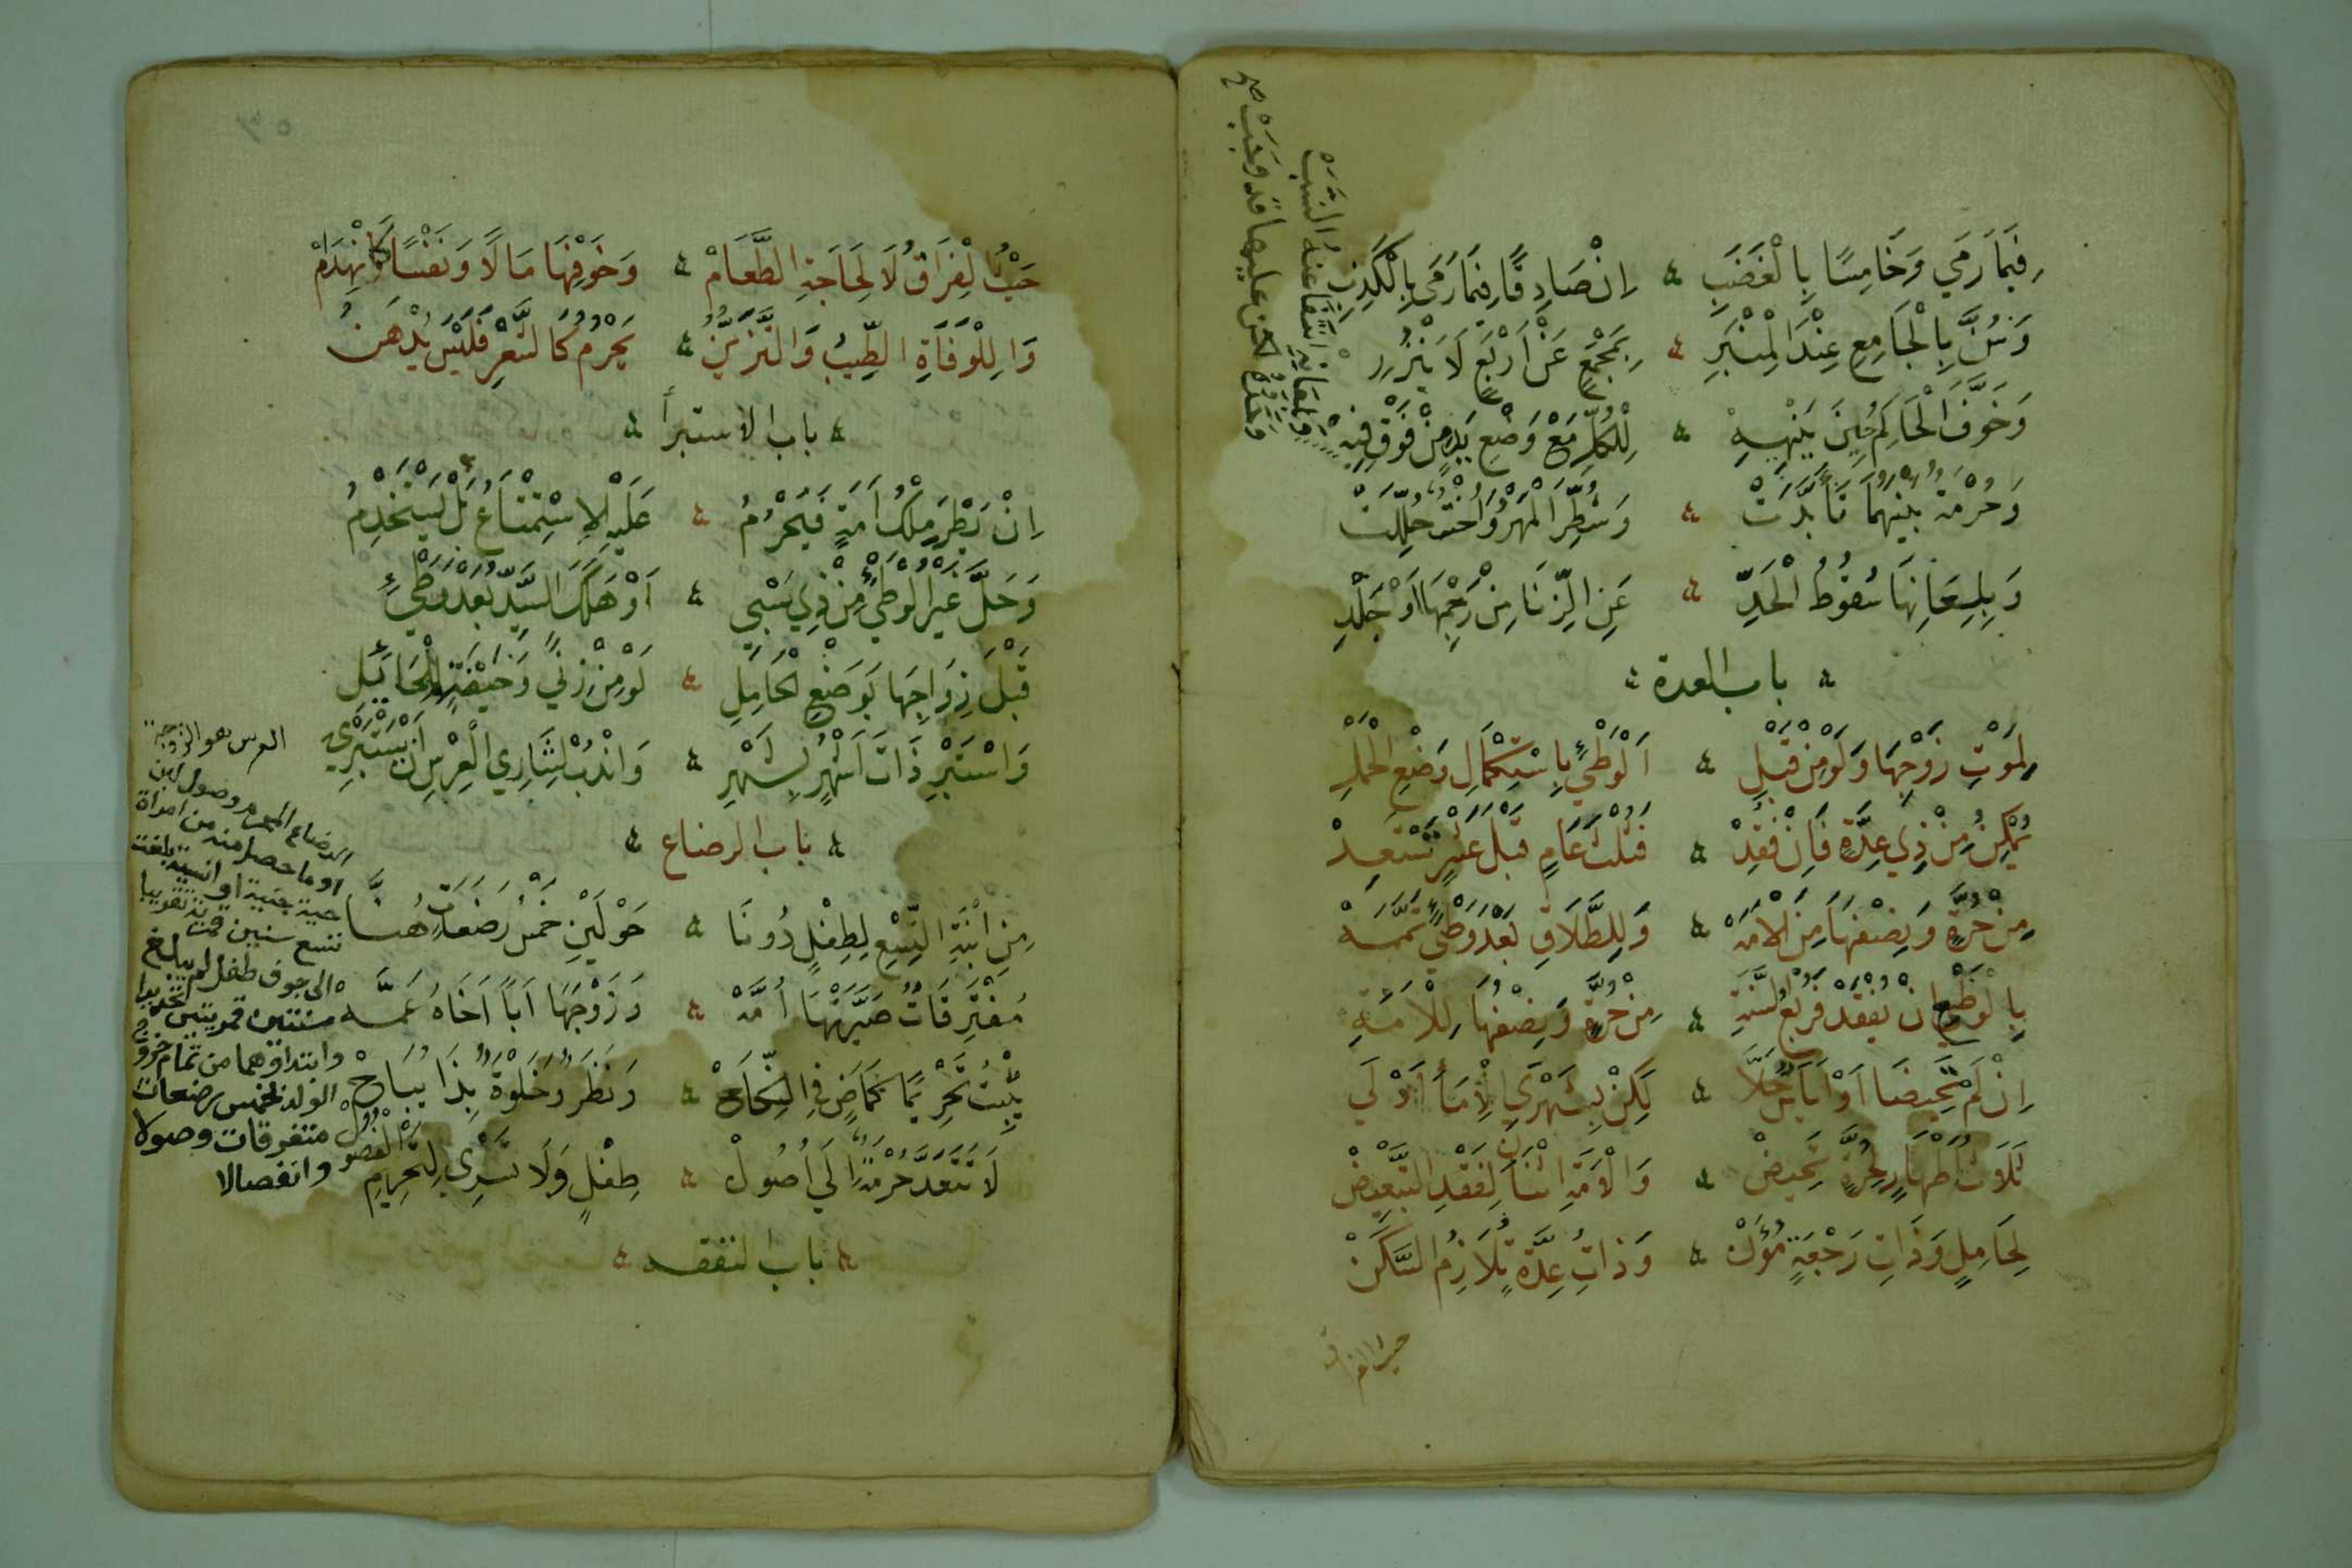 فِيمَا رَمَي وَخَامِسًا بِالْغَضَبِ ۞ اِنْ صَادِقًا فِيمَا رَمَى بِالْكَذِبِ
وَسُنَّ بِالْجَامِعِ عِنْدَ الْمِنْبَرِ ۞ بِمَجْمَعٍ عَنْ اَرْبَعٍ لَا يَنْزُرِ
وَخَوَّفَ الْحَاكِمُ حِينَ يُنْهِيهِ ۞ لِلْكُلِّ مَعْ وَضْعِ يَدٍ مِنْ فَوْقِ فِيهِ
وَحُرْمَةٌ بَيْنَهُمَا تَأَبَّدَتْ ۞ وَشُطِّرَ الْمَهْرُ وَاُخْتٌ حُلِّلَتْ
وَبِلِعَانِهَا سُقُوطُ الْحَدِّ ۞ عَنِ الزِّنَا مِنْ رَجْمِهَا اَوْ جَلْدِ
وبلعانه انتفا عنه النسب
وحده لكن عليها قد وجب صح
باب العدة
لِمَوْتِ زَوْجِهَا وَلَوْ مِنْ قَبْلِ ۞ اَلْوَطْيِ بِاسْتِكْمَالِ وَضْعِ الْحَمْلِ
يُمْكِنُ مِنْ ذِي عِدَّةٍ فَاِنْ فُقِدْ ۞ فَثُلْثُ عَامٍ قَبْلَ عَشْرٍ تَسْتَعِدْ
مِنْ حُرَّةٍ وَنِصْفُهَا مِنَ الْاَمَهْ ۞ وَلِلطَّلَاقِ بَعْدَ وَطْيٍ تَمَّمَهْ
بِالْوَضْعِ اِنْ يُفْقَدْ فَرُبْعُ السَّنَةِ ۞ مِنْ حُرَّةٍ وَنِصْفُهَا لِلْاَمَةِ
اِنْ لَمْ تَحِيضَا اَوْ اَيَاسٌ حَلَّا ۞ لَكِنْ بِشَهْرَيْ لِاْمَأٍ اَوْلَي
ثَلَاثُ اَطْهَارٍ لِحُرَّةٍ تَحِيضْ ۞ وَالْاَمَةِ اثْنَانِ لِفَقْدِ التَّبْعِيضْ
لِحَامِلٍ وَذَاتِ رَجْعَةٍ مُؤَنْ ۞ وَذَاتُ عِدَّةٍ تُلَازِمُ السَّكَنْ
حيث الفراق
حَيْثُ الْفِرَاقُ لَا لِحَاجَةِ الطَّعَامْ ۞ وَخَوْفِهَا مَالًا وَنَفْسًا كَانْهِدَامْ
وَا لِلْوَفَاةِ الطِّيبُ وَالتَّزَيُّنُ ۞ يَحْرُمُ كَالشَّعْرِ فَلَيْسَ يُدْهَنُ
باب الاستبرأ
اِنْ يَطْرَ مِلْكُ اَمَةٍ فَيَحْرُمُ ۞ عَلَيْهِ الاِسْتِمْتَاعُ بَلْ يَسْتَخْدِمُ
وَحَلَّ غَيْرُ الْوَطْيِ مِنْ ذِي سَبْيِ ۞ اَوْ هَلَكَ السَّيِّدُ بَعْدَ وَطْيِ
قَبْلَ زِوَاجِهَا بِوَضْعِ الْحَامِلِ ۞ لَوْ مِنْ زِنًي وَحَيْضَةٍ لِلْحَائِلِ
وَاسْتَبْرِ ذَاتَ اَشْهُرٍ بِشَهْرِ ۞ وَانْدُبْ لِشَارِي الْعِرْسِ اَنْ يَسْتَبْرِي
العرس هو الزوجة
باب الرضاع
مِنِ ابْنَةِ التِّسْعِ لِطِفْلٍ دُونَا ۞ حَوْلَيْنِ خَمْسُ رَضَعَاتٍ هُنَّا
مُفْتَرِقَاتٌ صَيَّرَتْهَا اُمَّهْ ۞ وَزَوْجَهَا اَبًا اَخَاهُ عَمَّهْ
يُثْبِتُ تَحْرِيمًا كَمَا مَضَى فِي النِّكَاحْ ۞ وَنَظَرٌ وَخَلْوَةٌ بِذَا يُبَاحْ
لَا تَتَعَدَّ حُرْمَةٌ اِلَي اُصُولْ ۞ طِفْلٍ وَلَا تَسْرِي لِتَحْرِيمِ الْفُصُولْ
الرضاع المحرم وصول لبن
او ما حصل منه من امراة
حية جنية او انسية بلغت
تسع سنين قمرية تقريبا
الى جوف طفل لم يبلغ
سنتين قمريتين تحديدا
وابتداؤهما من تمام خروج
الولد بخمس رضعات
متفرقات وصولا
وانفصالا
باب النفقه